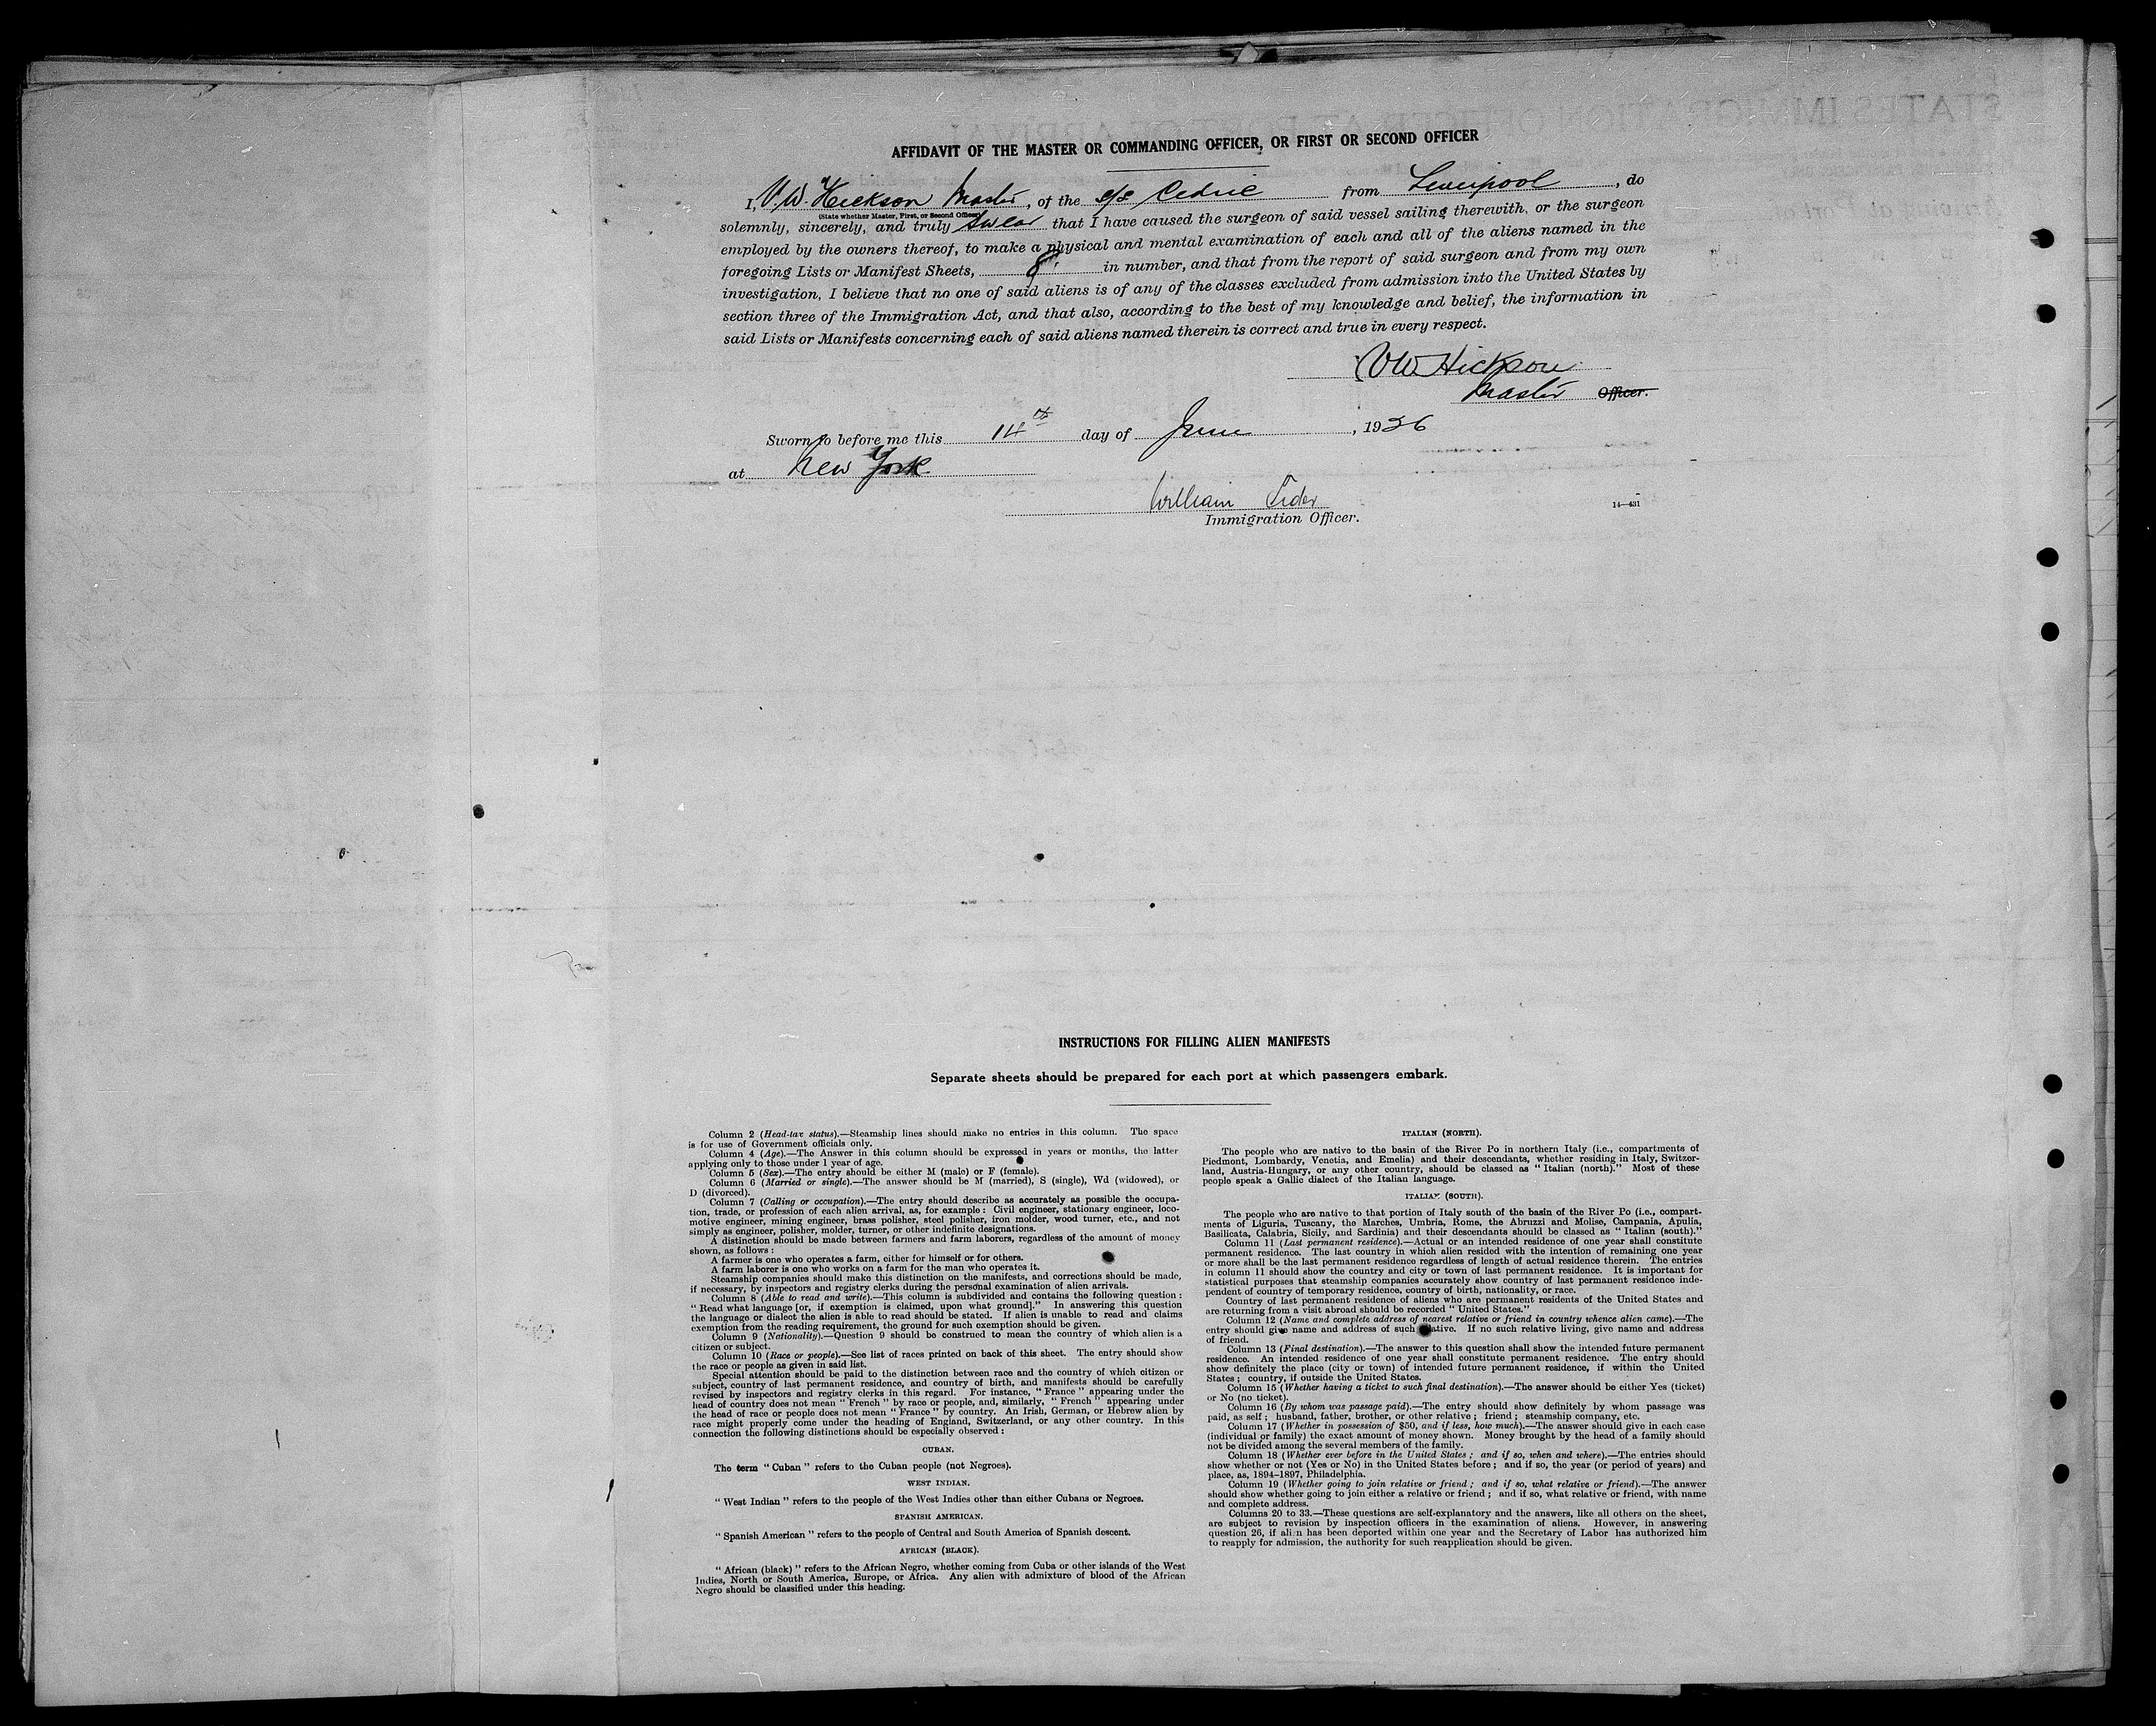 AFFIDAVIT OF THE MASTER OR COMMANDING OFFICER, OR FIRST OR SECOND OFFICER
I, V. W. Hickson Master, of the s/s Cedric from Liverpool, do
(State whether Master, First, or Second Officer)
solemnly, sincerely, and truly swear that I have caused the surgeon of said vessel sailing therewith, or the surgeon
employed by the owners thereof, to make a physical and mental examination of each and all of the aliens named in the
foregoing Lists or Manifest Sheets, 8 in number, and that from the report of said surgeon and from my own
investigation, I believe that no one of said aliens is of any of the classes excluded from admission into the United States by
section three of the Immigration Act, and that also, according to the best of my knowledge and belief, the information in
said Lists or Manifests concerning each of said aliens named therein is correct and true in every respect.
VW Hickson
Master Officer.
Sworn to before me this 14th day of June, 1926
at New York
William
Immigration Officer.
14—431
INSTRUCTIONS FOR FILLING ALIEN MANIFESTS
Separate sheets should be prepared for each port at which passengers embark.
Column 2 (Head-tax status).—Steamship lines should make no entries in this column. The space
is for use of Government officials only.
Column 4 (Age).—The Answer in this column should be expressed in years or months, the latter
applying only to those under 1 year of age.
Column 5 (Sex).—The entry should be either M (male) or F (female).
Column 6 (Married or single).—The answer should be M (married), S (single), Wd (widowed), or
D (divorced).
Column 7 (Calling or occupation).—The entry should describe as accurately as possible the occupa-
tion, trade, or profession of each alien arrival, as, for example: Civil engineer, stationary engineer, loco-
motive engineer, mining engineer, brass polisher, steel polisher, iron molder, wood turner, etc., and not
simply as engineer, polisher, molder, turner, or other indefinite designations.
A distinction should be made between farmers and farm laborers, regardless of the amount of money
shown, as follows:
A farmer is one who operates a farm, either for himself or for others.
A farm laborer is one who works on a farm for the man who operates it.
Steamship companies should make this distinction on the manifests, and corrections should be made,
if necessary, by inspectors and registry clerks during the personal examination of alien arrivals.
Column 8 (Able to read and write).—This column is subdivided and contains the following question:
"Read what language [or, if exemption is claimed, upon what ground]." In answering this question
the language or dialect the alien is able to read should be stated. If alien is unable to read and claims
exemption from the reading requirement, the ground for such exemption should be given.
Column 9 (Nationality).—Question 9 should be construed to mean the country of which alien is a
citizen or subject.
Column 10 (Race or people).—See list of races printed on back of this sheet. The entry should show
the race or people as given in said list.
Special attention should be paid to the distinction between race and the country of which citizen or
subject, country of last permanent residence, and country of birth, and manifests should be carefully
revised by inspectors and registry clerks in this regard. For instance, "France" appearing under the
head of country does not mean "French" by race or people, and, similarly, "French" appearing under
the head of race or people does not mean "France" by country. An Irish, German, or Hebrew alien by
race might properly come under the heading of England, Switzerland, or any other country. In this
connection the following distinctions should be especially observed:
CUBAN.
The term "Cuban" refers to the Cuban people (not Negroes).
WEST INDIAN.
"West Indian" refers to the people of the West Indies other than either Cubans or Negroes.
SPANISH AMERICAN.
"Spanish American" refers to the people of Central and South America of Spanish descent.
AFRICAN (BLACK).
"African (black)" refers to the African Negro, whether coming from Cuba or other islands of the West
Indies, North or South America, Europe, or Africa. Any alien with admixture of blood of the African
Negro should be classified under this heading.
ITALIAN (NORTH).
The people who are native to the basin of the River Po in northern Italy (i.e., compartments of
Piedmont, Lombardy, Venetia, and Emelia) and their descendants, whether residing in Italy, Switzer-
land, Austria-Hungary, or any other country, should be classed as "Italian (north)." Most of these
people speak a Gallic dialect of the Italian language.
ITALIAN (SOUTH).
The people who are native to that portion of Italy south of the basin of the River Po (i.e., compart-
ments of Liguria, Tuscany, the Marches, Umbria, Rome, the Abruzzi and Molise, Campania, Apulia,
Basilicata, Calabria, Sicily, and Sardinia) and their descendants should be classed as "Italian (south)."
Column 11 (Last permanent residence).—Actual or an intended residence of one year shall constitute
permanent residence. The last country in which alien resided with the intention of remaining one year
or more shall be the last permanent residence regardless of length of actual residence therein. The entries
in column 11 should show the country and city or town of last permanent residence. It is important for
statistical purposes that steamship companies accurately show country of last permanent residence inde-
pendent of country of temporary residence, country of birth, nationality, or race.
Country of last permanent residence of aliens who are permanent residents of the United States and
are returning from a visit abroad should be recorded "United States."
Column 12 (Name and complete address of nearest relative or friend in country whence alien came).—The
entry should give name and address of such relative. If no such relative living, give name and address
of friend.
Column 13 (Final destination).—The answer to this question shall show the intended future permanent
residence. An intended residence of one year shall constitute permanent residence. The entry should
show definitely the place (city or town) of intended future permanent residence, if within the United
States; country, if outside the United States.
Column 15 (Whether having a ticket to such final destination).—The answer should be either Yes (ticket)
or No (no ticket).
Column 16 (By whom was passage paid).—The entry should show definitely by whom passage was
paid, as self; husband, father, brother, or other relative; friend; steamship company, etc.
Column 17 (Whether in possession of $50, and if less, how much).—The answer should give in each case
(individual or family) the exact amount of money shown. Money brought by the head of a family should
not be divided among the several members of the family.
Column 18 (Whether ever before in the United States; and if so, when and where).—The entries should
show whether or not (Yes or No) in the United States before; and if so, the year (or period of years) and
place, as, 1894-1897, Philadelphia.
Column 19 (Whether going to join relative or friend; and if so, what relative or friend).—The answer
should show whether going to join either a relative or friend; and if so, what relative or friend, with name
and complete address.
Columns 20 to 33.—These questions are self-explanatory and the answers, like all others on the sheet,
are subject to revision by inspection officers in the examination of aliens. However, in answering
question 26, if alien has been deported within one year and the Secretary of Labor has authorized him
to reapply for admission, the authority for such reapplication should be given.